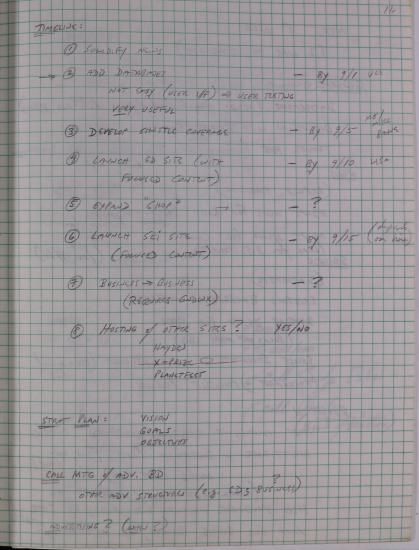 TIMELINE:
① SOLIDIFY NEWS
→ ② ADD DATABASES — BY 9/1
NOT EASY (USER I/F) → USER TESTING
VERY USEFUL
③ DEVELOP SHUTTLE COVERAGE — BY 9/5
④ LAUNCH SD SITE (WITH — BY 9/10
FOCUSED CONTENT)
⑤ EXPAND "SHOP" → — ?
⑥ LAUNCH SETI SITE — BY 9/15 (depends
(FOCUSED CONTENT)
⑦ BUSINESS → BUSINESS — ?
(REQUIRES
⑧ HOSTING of OTHER SITES? YES/NO
HAYDEN
X-PRIZE
PLANETFEST
STRAT PLAN: VISION
GOALS
OBJECTIVES
CALL MTG of ADV. BD
OTHER ADV STRUCTURES (e.g. BUSINESS)?
ADVERTISING? (WHEN?)